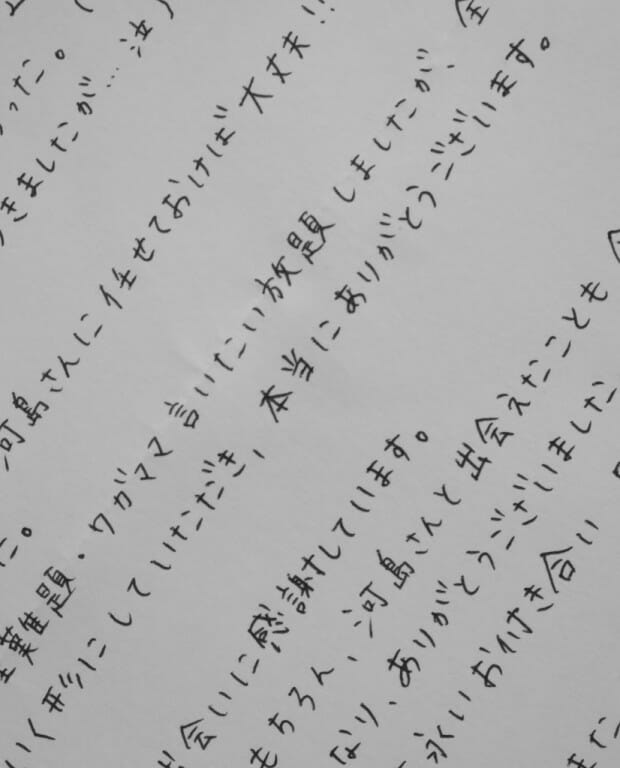 った。
きましたが…泣)
河島さんに任せておけば大丈夫!!
た。
難題・ワガママ言いたい放題しましたが、全
いく形にしていただき、本当にありがとうございます。
出会いに感謝しています。
もちろん、河島さんと出会えたことも
なり、ありがとうございました
永いお付き合い
また